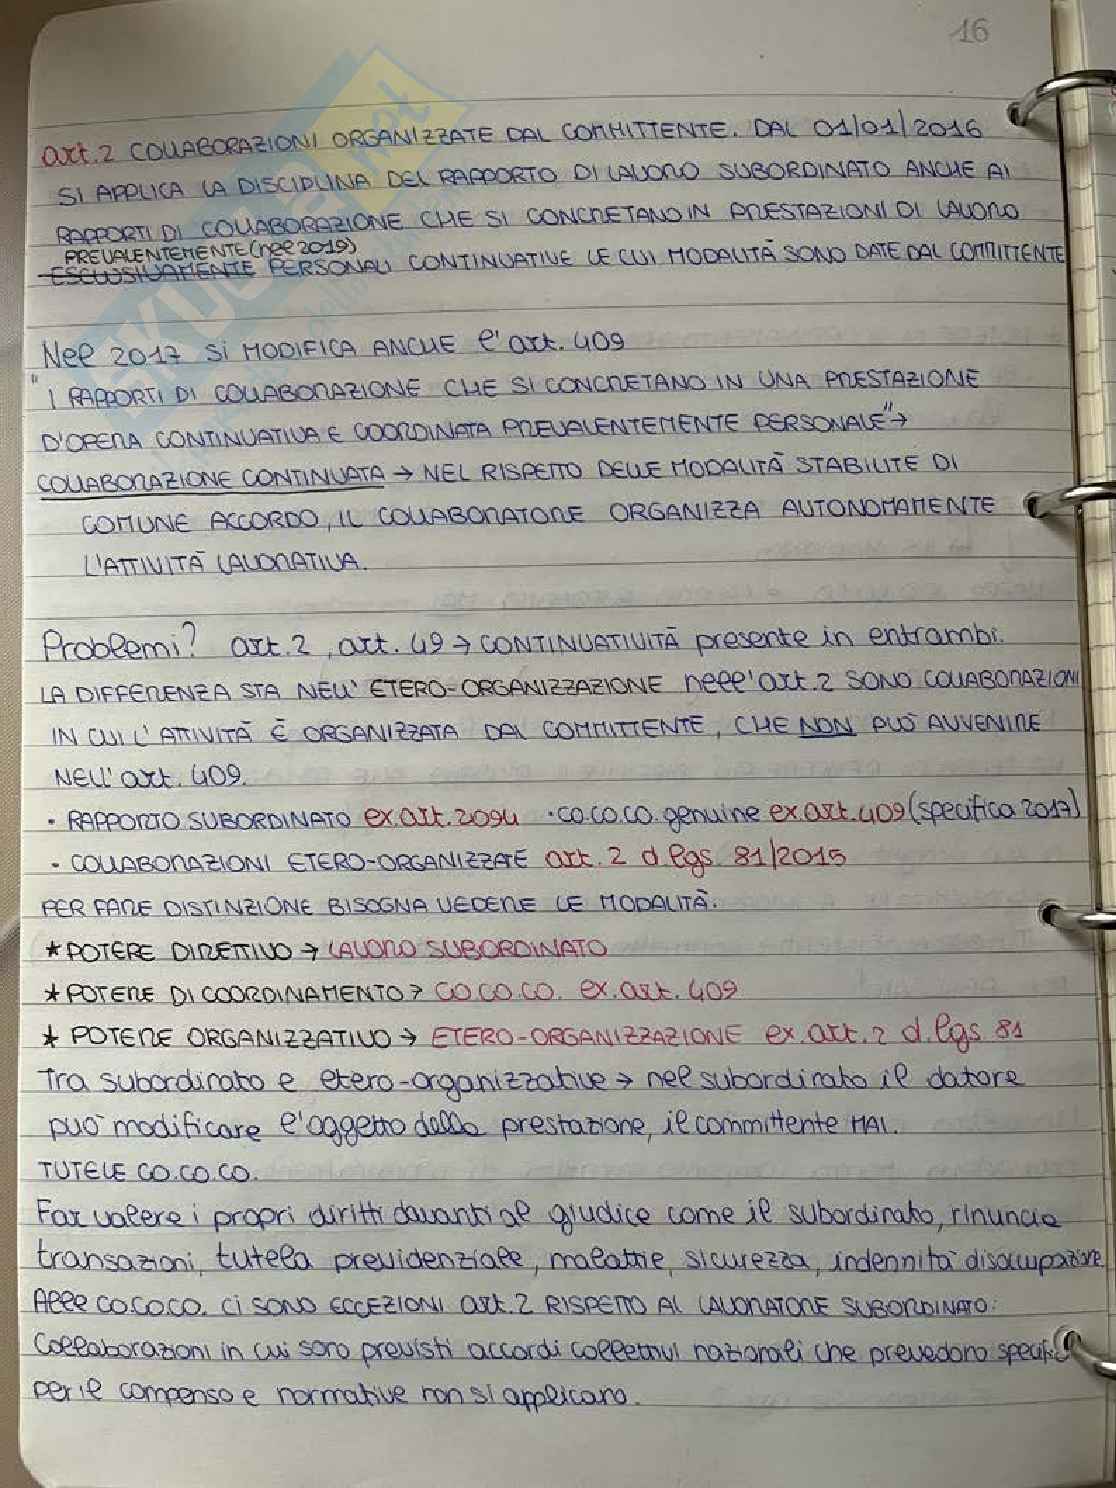 16
art.2 COLLABORAZIONI ORGANIZZATE DAL COMMITTENTE. DAL 01/01/2016
SI APPLICA LA DISCIPLINA DEL RAPPORTO DI LAVORO SUBORDINATO ANCHE AI
RAPPORTI DI COLLABORAZIONE CHE SI CONCRETANO IN PRESTAZIONI DI LAVORO
PREVALENTEMENTE (nel 2019)
ESCLUSIVAMENTE PERSONALI CONTINUATIVE LE CUI MODALITÀ SONO DATE DAL COMMITTENTE
Nel 2017 si MODIFICA ANCHE l'art. 409
"I RAPPORTI DI COLLABORAZIONE CHE SI CONCRETANO IN UNA PRESTAZIONE
D'OPERA CONTINUATIVA E COORDINATA PREVALENTEMENTE PERSONALE" →
COLLABORAZIONE CONTINUATA → NEL RISPETTO DELLE MODALITÀ STABILITE DI
COMUNE ACCORDO, IL COLLABORATORE ORGANIZZA AUTONOMAMENTE
L'ATTIVITÀ LAVORATIVA.
Problemi? art.2, art. 49 → CONTINUATIVITÀ presente in entrambi.
LA DIFFERENZA STA NELL' ETERO-ORGANIZZAZIONE nell'art.2 SONO COLLABORAZIONI
IN CUI L'ATTIVITÀ È ORGANIZZATA DAL COMMITTENTE, CHE NON PUÒ AVVENIRE
NELL'art. 409.
• RAPPORTO SUBORDINATO ex.art.2094 • co.co.co. genuine ex art.409 (specifica 2017)
• COLLABORAZIONI ETERO-ORGANIZZATE art. 2 d lgs. 81/2015
PER FARE DISTINZIONE BISOGNA VEDERE LE MODALITÀ.
★ POTERE DIRETTIVO → LAVORO SUBORDINATO
★ POTERE DI COORDINAMENTO → CO.CO.CO. ex.art. 409
★ POTERE ORGANIZZATIVO → ETERO-ORGANIZZAZIONE ex.art.2 d.lgs. 81
Tra subordinato e etero-organizzative → nel subordinato il datore
può modificare l'oggetto della prestazione, il committente MAI.
TUTELE CO.CO.CO.
Far valere i propri diritti davanti al giudice come il subordinato, rinuncia
transazioni, tutela previdenziale, malattie, sicurezza, indennità disoccupazione.
Alle CO.CO.CO. ci SONO ECCEZIONI art.2 RISPETTO AL LAVORATORE SUBORDINATO:
Collaborazioni in cui sono previsti accordi collettivi nazionali che prevedono
per il compenso e normative non si applicano.